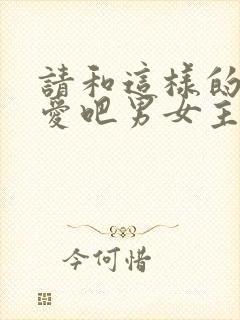 請和這樣的
愛吧男女主
今何惜